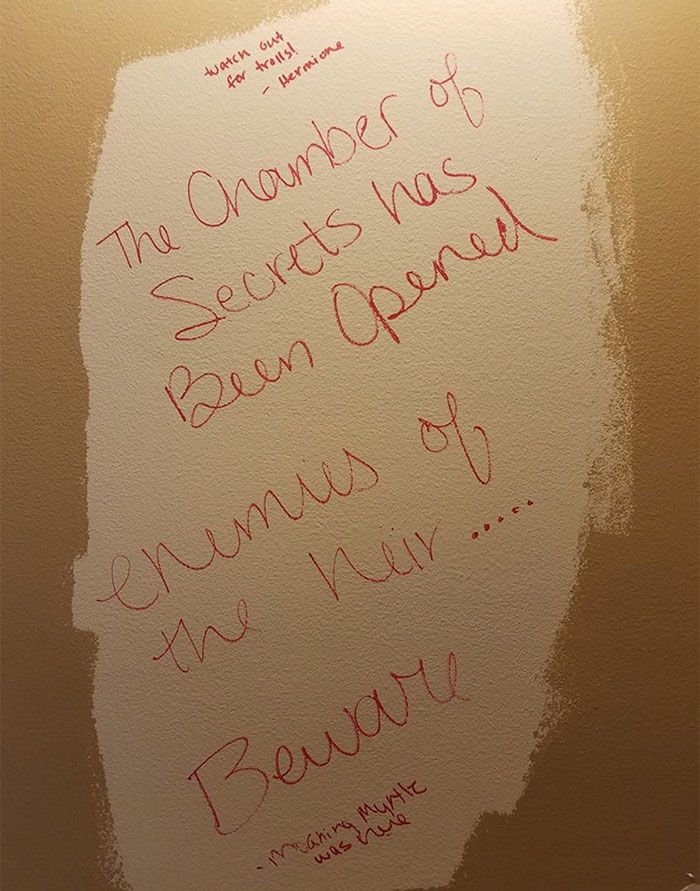 watch out
for trolls!
- Hermione
The Chamber of
Secrets has
Been Opened
enemies of
the heir .....
Beware
- Moaning Myrtle
was here